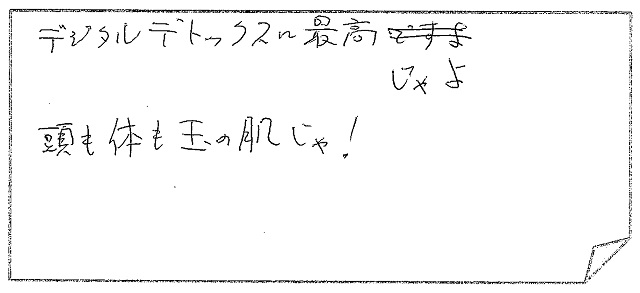 デジタルデトックスに最高ですよ
じゃよ
頭も体も玉の肌じゃ!